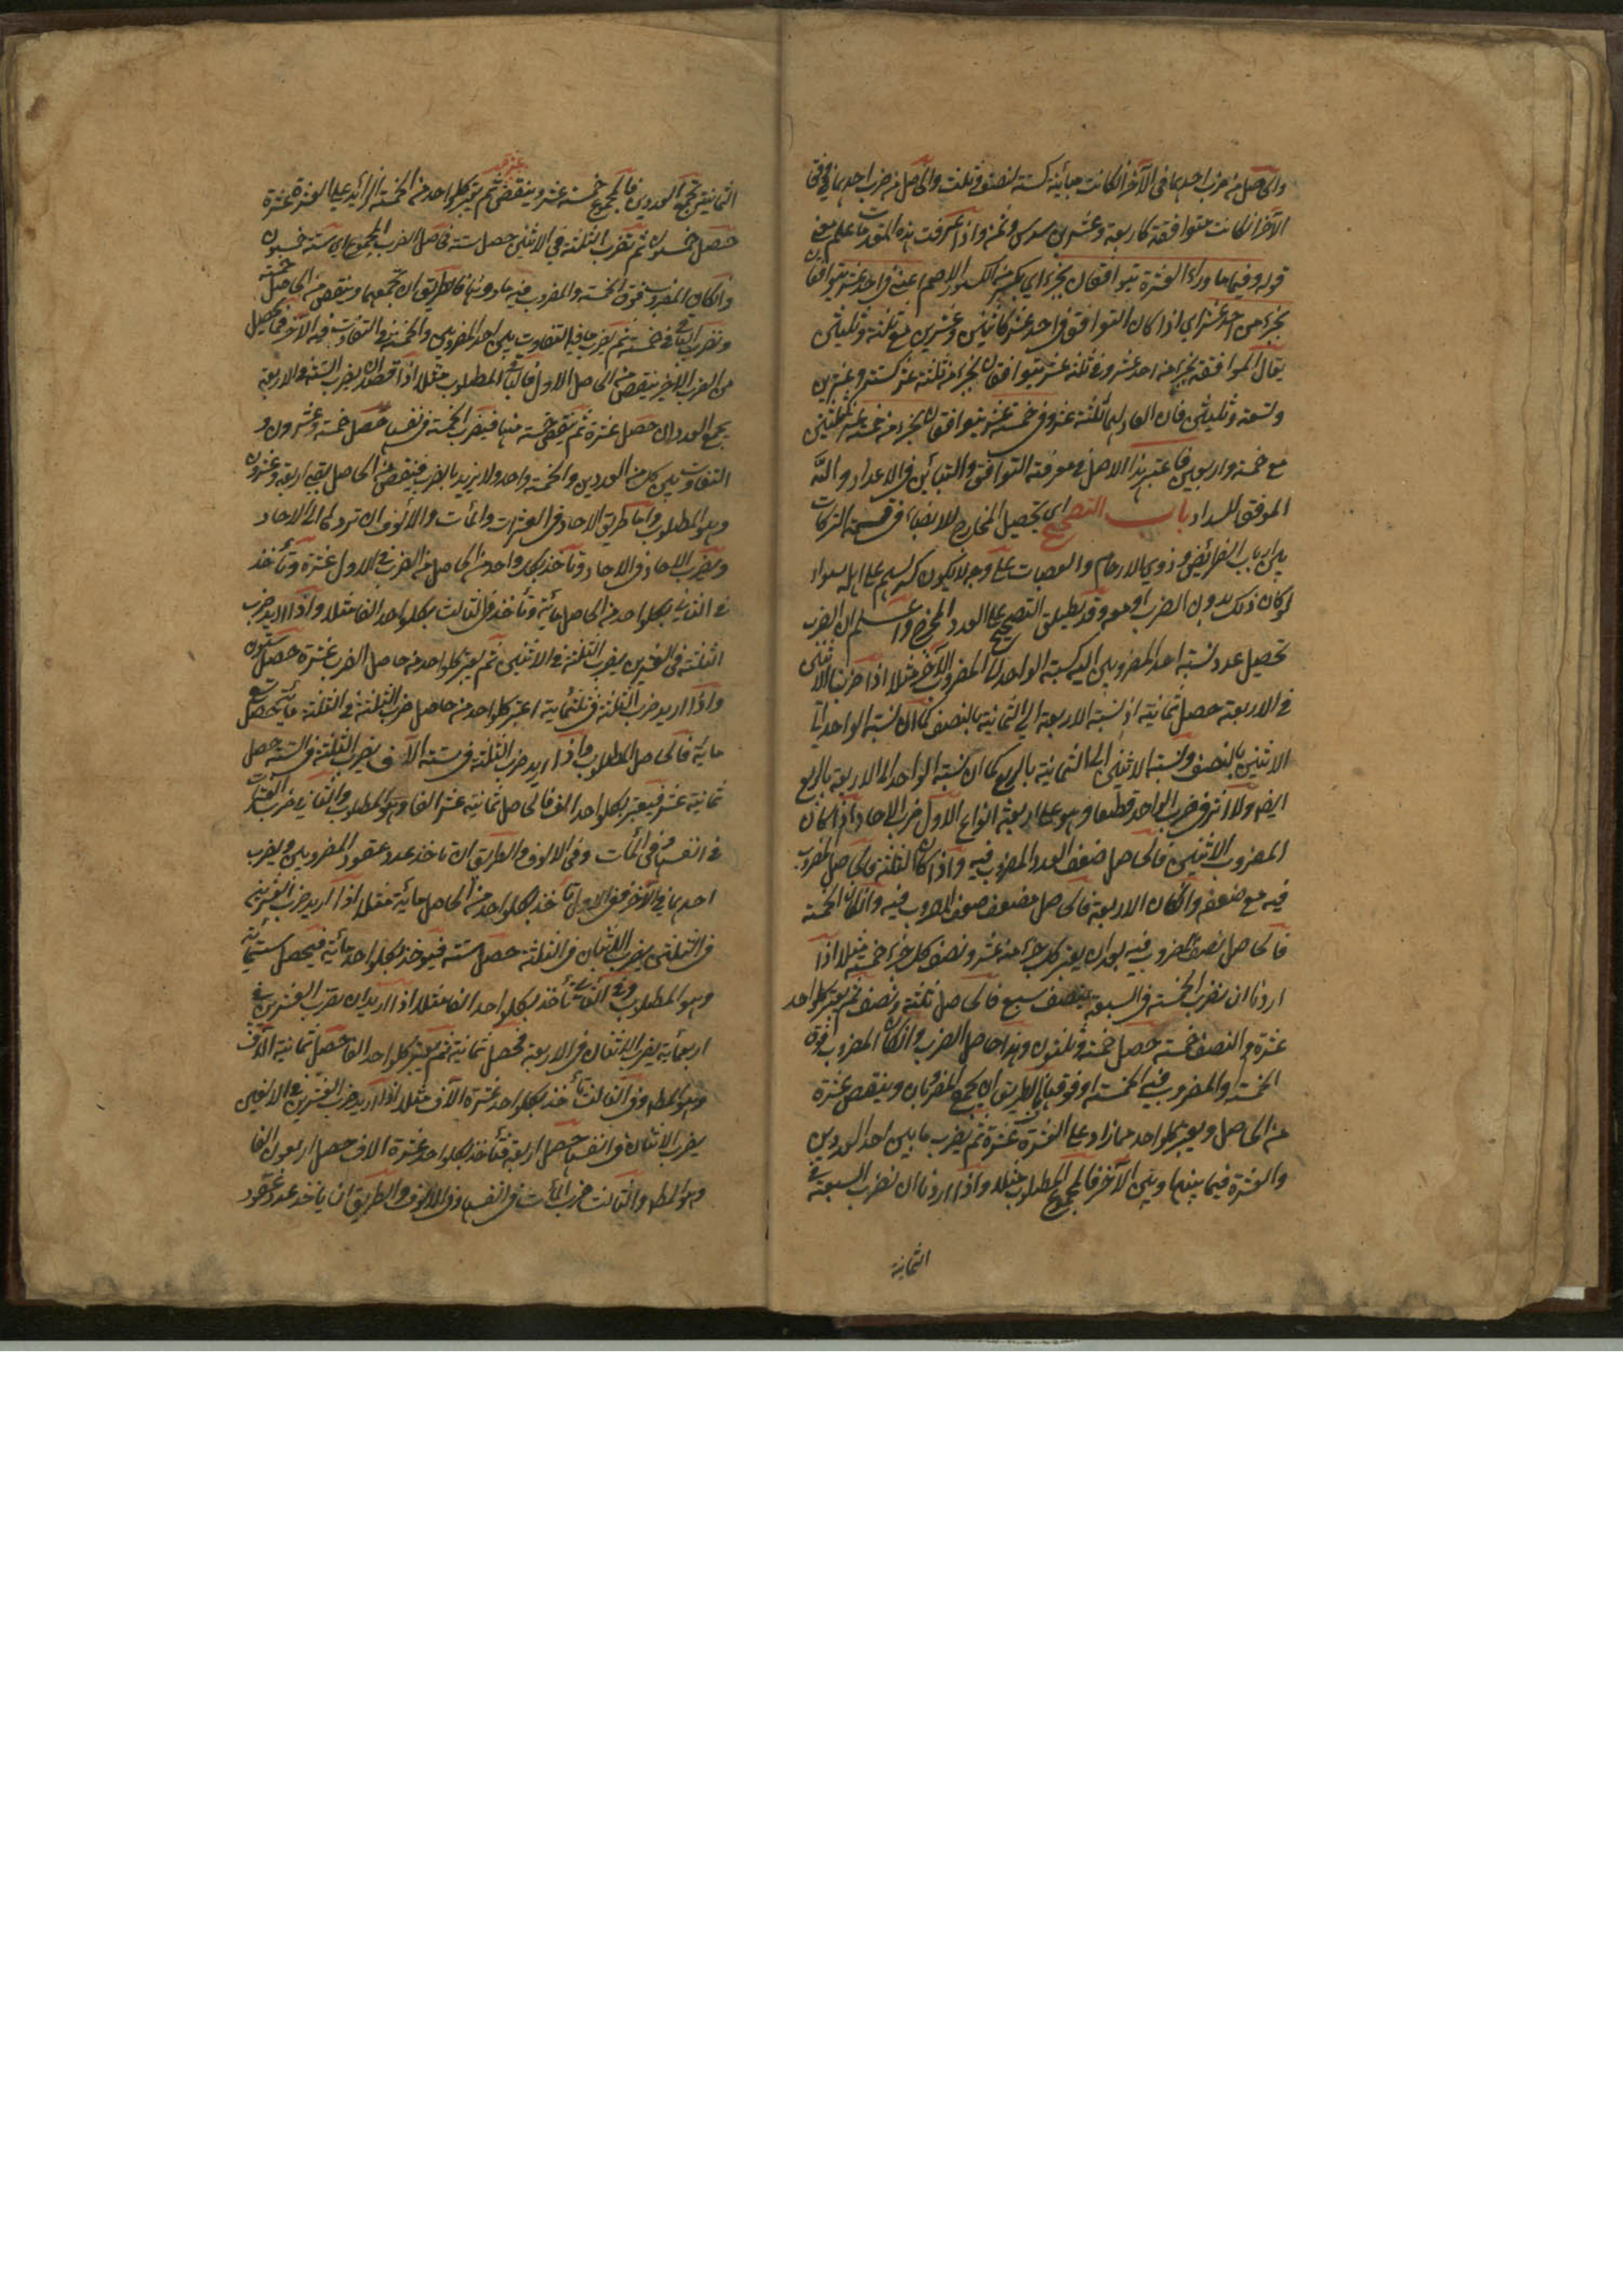 والحاصل من ضرب احدهما فى الآخر ان كانت مباينة كستة لنصف وثلث والحاصل من ضرب احدهما فى وفق
الآخر ان كانت متوافقة كاربعة وعشرين سدس وثمن واذا عرفت هذه المقدمات علم معنى
قوله وفيما وراء العشرة يتوافقان بجزء اى بكسر من الكسور الاصم اعنى فى احد عشر يتوافقان
بجزء من احد عشر اى اذا كان التوافق فى احد عشر كاثنين وعشرين مع ثلثة وثلثين
يقال الموافقة بجزء من احد عشر وفى ثلثة عشر يتوافقان بجزء من ثلثة عشر كستة وعشرين
وتسعة وثلثين فان العاد لهما ثلثة عشر وفى خمسة عشر يتوافقان بجزء من خمسة عشر كثلثين
مع خمسة واربعين فاعتبر هذا الاصل فى معرفة التوافق والتباين فى الاعداد والله
الموفق للسداد باب التصحيح اى تحصيل المخارج للانصباء فى قسمة التركات
بين ارباب الفرائض وذوى الارحام والعصبات على وجه لا يكون كسر لسهم على اهله سواء
كان ذلك بدون الضرب او معه وقد يطلق التصحيح على العدد المخرج واعلم ان الضرب
تحصيل عدد نسبة احد المضروبين اليه كنسبة الواحد الى المضروب الآخر مثلا اذا ضربنا الاثنين
فى الاربعة حصل ثمانية اذ نسبة الاربعة الى الثمانية بالنصف كما ان نسبة الواحد الى
الاثنين بالنصف ونسبة الاثنين الى الثمانية بالربع كما ان نسبة الواحد الى الاربعة بالربع
ايضا ولا اثر فى ضرب الواحد قطعا وهو على اربعة انواع الاول ضرب الآحاد اذا كان
المضروب الاثنين فالحاصل ضعف العدد المضروب فيه واذا كان الثلثة فالحاصل المضروب
فيه مع ضعفه وان كان الاربعة فالحاصل ضعف ضعف المضروب فيه وان كان الخمسة
فالحاصل نصف المضروب فيه بعد ان يعتبر كل جزء منه عشر ونصف كل جزء خمسة مثلا اذا
اردنا ان نضرب الخمسة فى السبعة ننصف سبع فالحاصل ثلثة ونصف ثم يعتبر كل واحد
عشرة والنصف خمسة حصل خمسة وثلثون وهذا حاصل الضرب وان كان المضروب فوق
الخمسة والمضروب فيه الخمسة او فوقها فالطريق ان يجمع المضروبان وينقص عشرة
من الحاصل ويعتبر كل واحد مما زاد على العشرة عشرة ثم يضرب ما بين احد العددين
والعشرة فيما بينها وبين الآخر فالمجموع المطلوب مثلا واذا اردنا ان نضرب السبعة فى
الثمانية
الثمانية نجمع العددين فالمجموع خمسة عشر وينقص عشرة ثم يعتبر كل واحد من الخمسة الزائد على العشرة عشرة
حصل خمسون ثم نضرب الثلثة فى الاثنين حصل ستة فحاصل الضرب المجموع اى ستة خمسون
وان كان المضروب فوق الخمسة والمضروب فيه ما دونها فالطريق ان نجمعهما وينقص من الحاصل خمسة
ونضرب الباقى فى خمسة ثم نضرب ما فيه التفاوت بين احد المضروبين والخمسة فى التفاوت فيه الآخر فما يحصل
من الضرب الاخير ينقص من الحاصل الاول فالباقى المطلوب مثلا اذا قصد ان يضرب الستة فى الاربعة
يجمع العددان حصل عشرة ثم ينقص خمسة منها فيضرب الخمسة فى نفسها حصل خمسة وعشرون و
التفاوت بين كل من العددين والخمسة واحد ولا يزيد بالضرب فينقص من الحاصل بقيه اربعة وعشرون
وهو المطلوب واما طريق الآحاد فى العشرات والمآت والالوف ان ترد كما الى الآحاد
ويضرب الآحاد فى الآحاد وتأخذ بكل واحد من الحاصل من الضرب فى الاول عشرة وتأخذ
فى الثانى بكل واحد من الحاصل مائة وتأخذ فى الثالث بكل واحد الفا مثلا واذا اريد ضرب
الثلثة فى العشرين يضرب الثلثة فى الاثنين ثم يعتبر كل واحد من حاصل الضرب عشرة حصل ستون
واذا اريد ضرب الثلثة فى ثلثمائة اعتبر كل واحد من حاصل ضرب الثلثة فى الثلثة مائة تحصل تسع
مائة فالحاصل المطلوب واذا اريد ضرب الثلثة فى ستة آلاف يضرب الثلثة فى الستة حصل
ثمانية عشر فيعتبر بكل واحد الف فالحاصل ثمانية عشر الفا وهو المطلوب والثانى ضرب العشرات
فى انفسها وفى المآت وفى الالوف والطريق ان تاخذ عدد عقود المضروبين ويضرب
احدهما فى الآخر ففى الاول تأخذ بكل واحد من الحاصل مائة مثلا اذا اريد ضرب العشرين
فى الثلثين يضرب الاثنان فى الثلثة حصل ستة فيؤخذ بكل واحد مائة فيحصل ستمائة
وهو المطلوب وفى الثانى تأخذ بكل واحد الفا مثلا اذا اريد ان نضرب العشرين فى
اربعمائة يضرب الاثنان فى الاربعة فحصل ثمانية ثم يعتبر بكل واحد الفا حصل ثمانية آلاف
وهو المط وفى الثالث تأخذ بكل واحد عشرة آلاف مثلا اذا اريد ضرب العشرين فى الالفين
يضرب الاثنان فى انفسها حصل اربعة فتأخذ بكل واحد عشرة الاف حصل اربعون الفا
وهو المط والثالث ضرب المآت فى انفسها وفى الالوف والطريق ان ياخذ عدد عقود